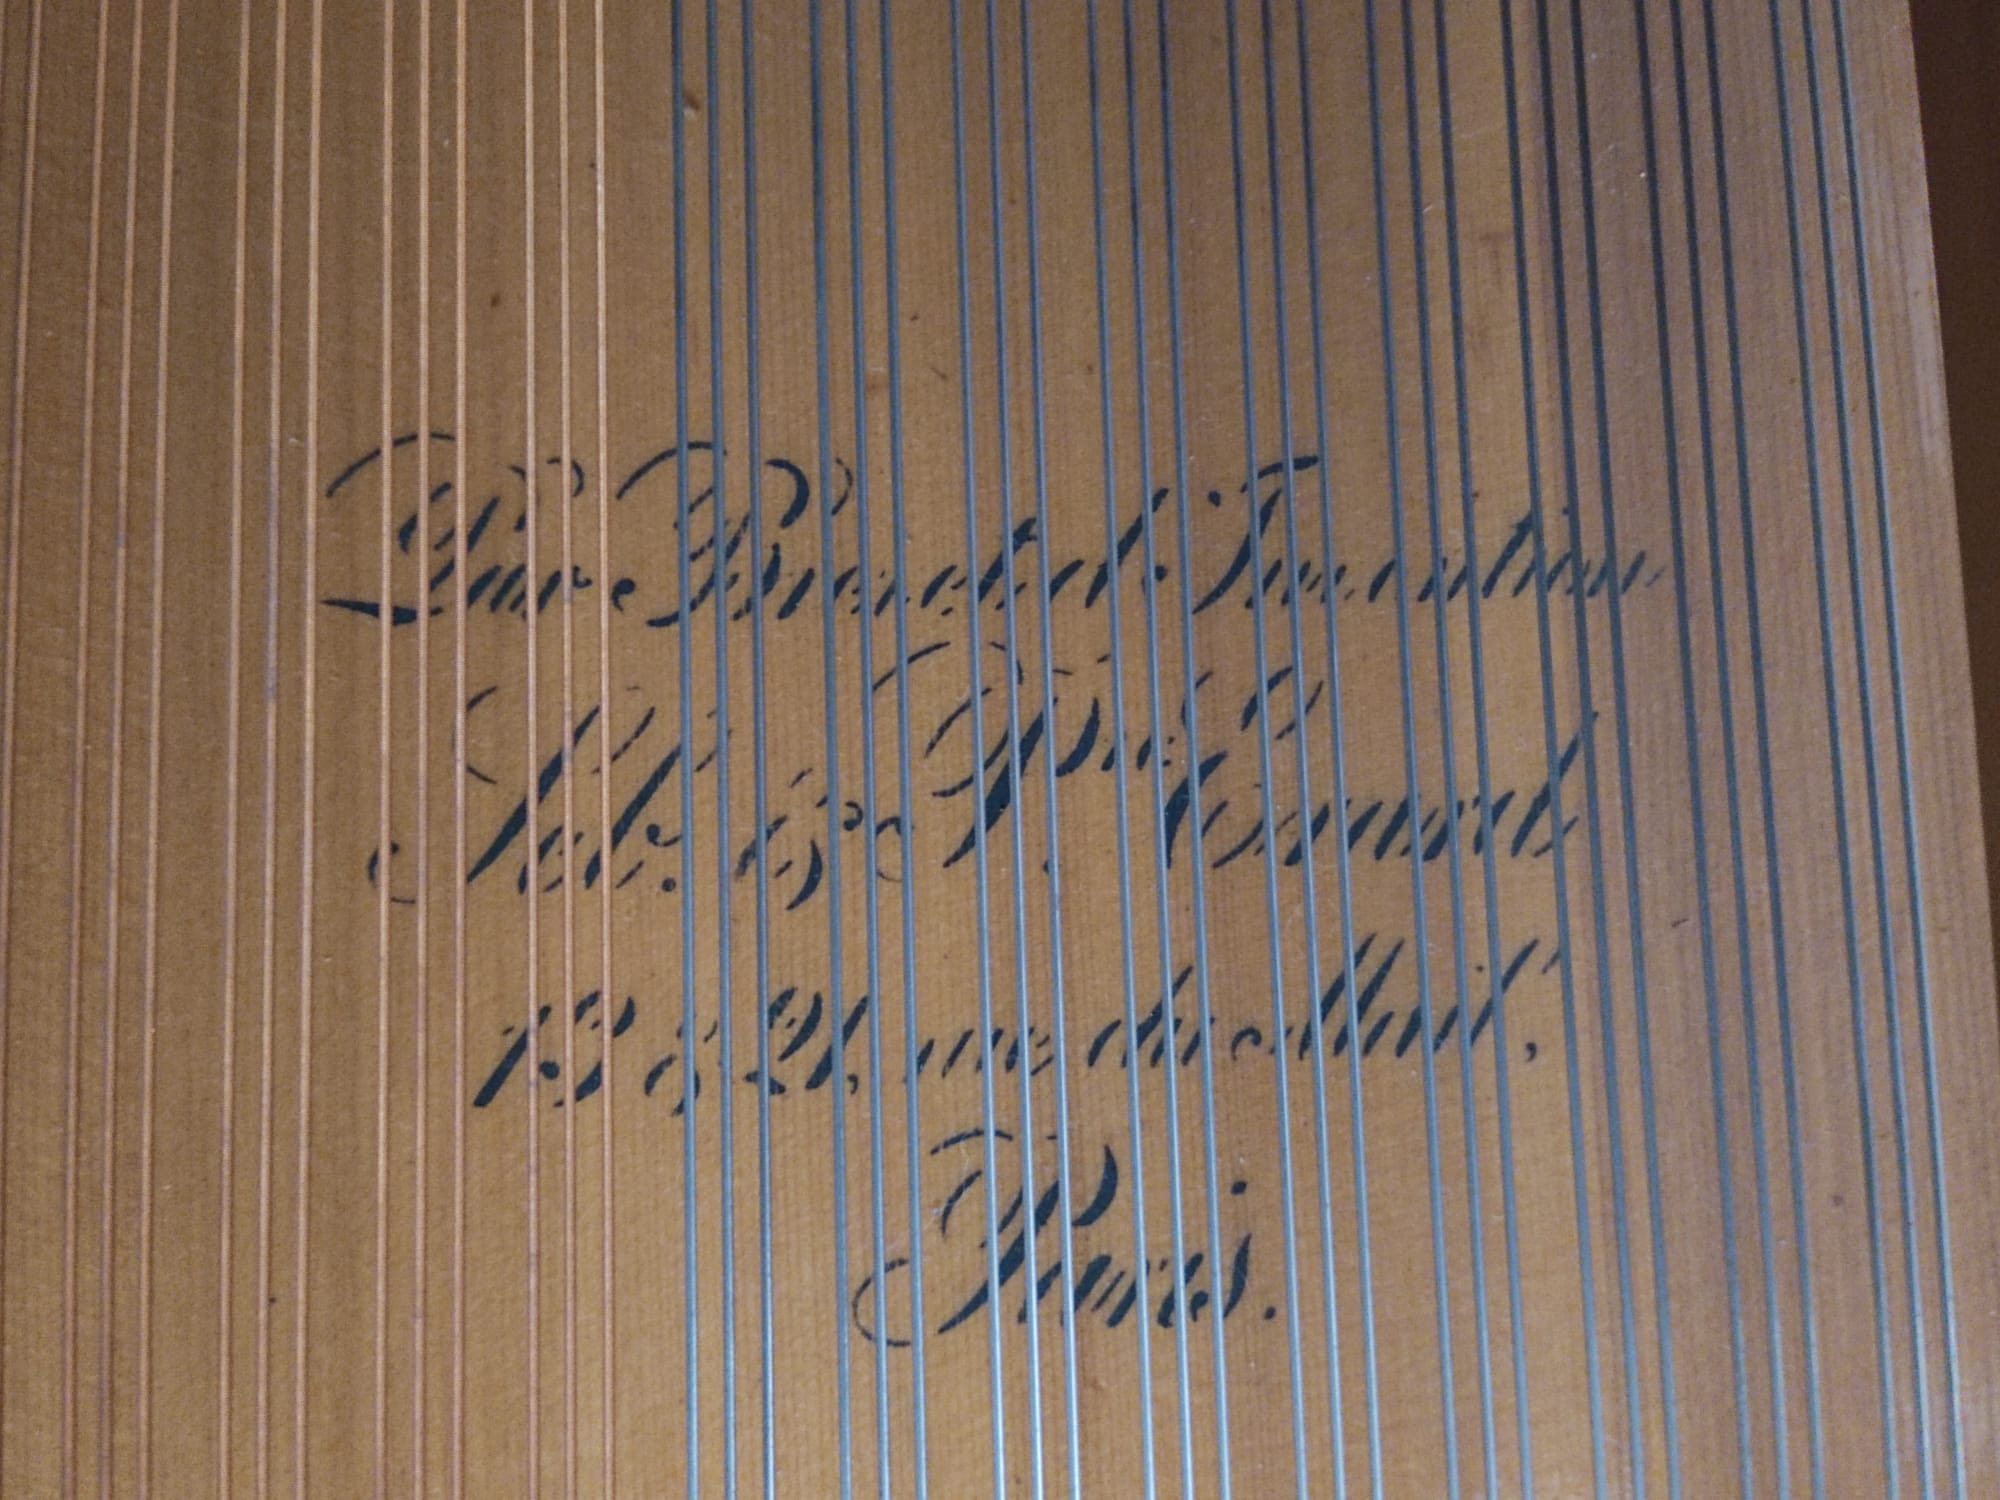 Par Brevet d'Invention
Seb. & Pre Erard
13 & 21, rue du Mail,
Paris.